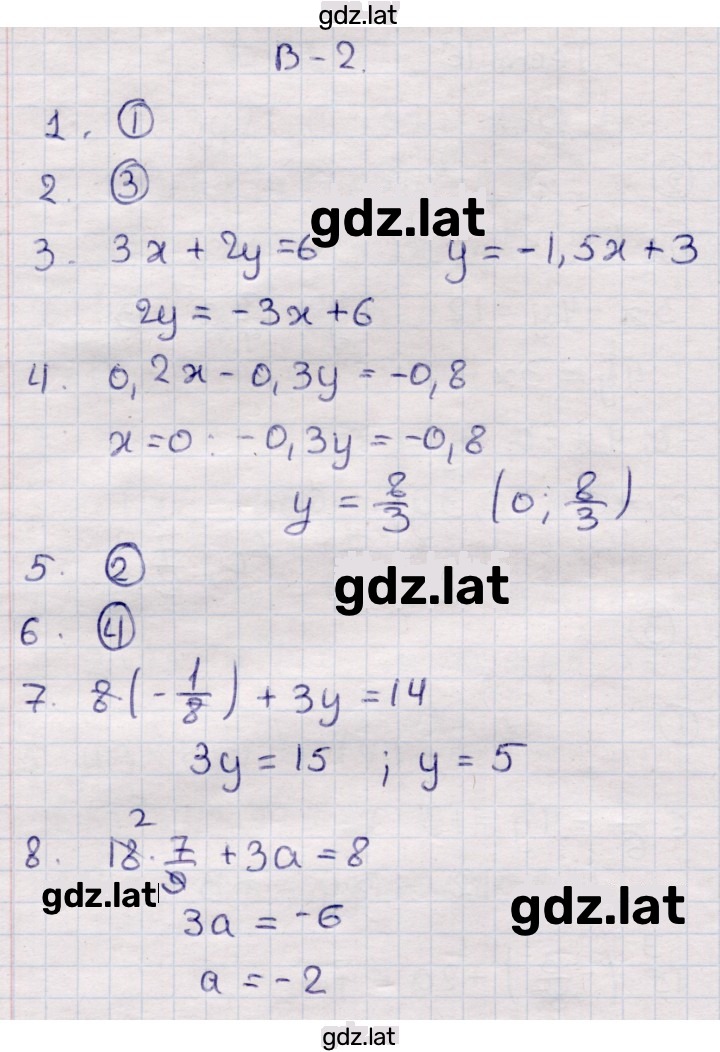 gdz.lat
В-2.
1. ①
2. ③
gdz.lat
3. 3x + 2y = 6 y = -1,5x + 3
2y = -3x + 6
4. 0,2x - 0,3y = -0,8
x = 0 : -0,3y = -0,8
y = 8/3 (0; 8/3)
5. ②
gdz.lat
6. ④
7. 8(-1/8) + 3y = 14
3y = 15 ; y = 5
2
8. 18 · 7/9 + 3a = 8
gdz.lat
3a = -6
gdz.lat
a = -2
gdz.lat